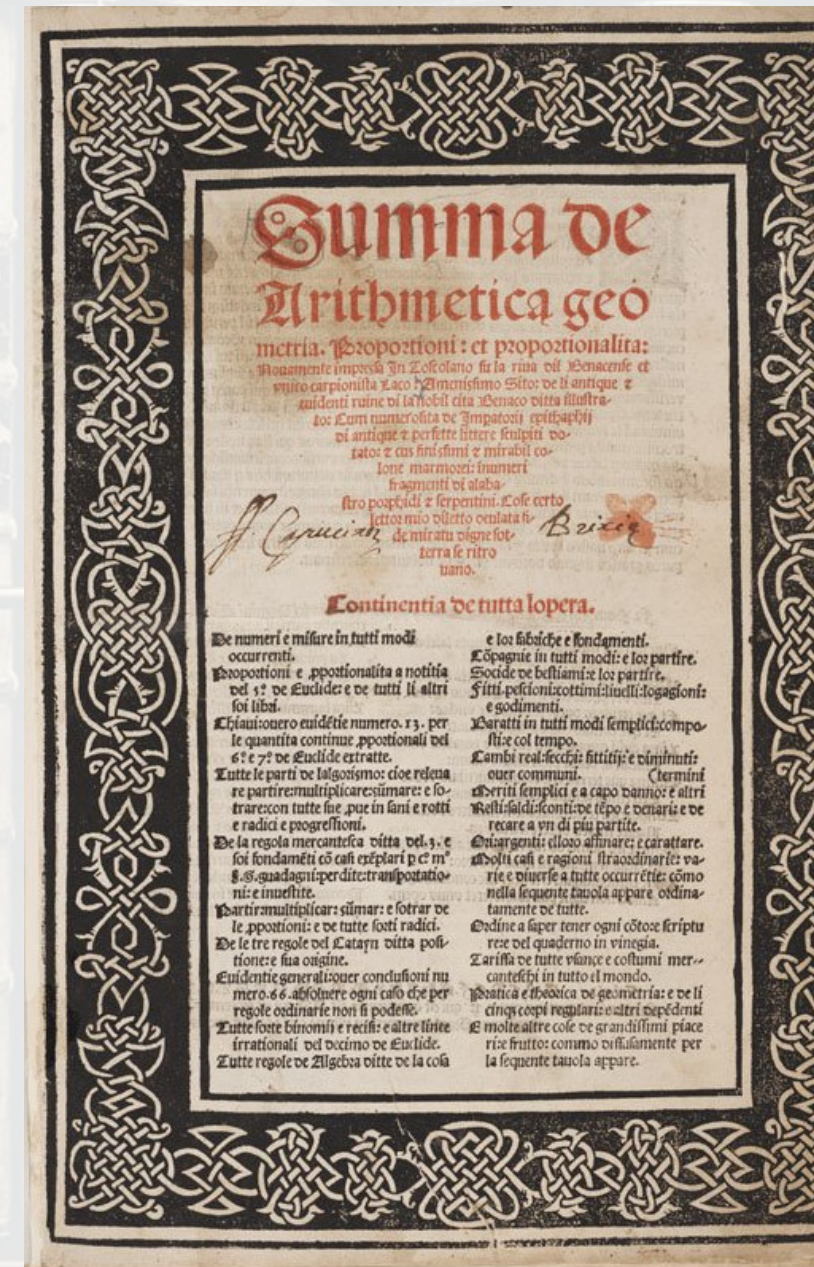 Summa de
Arithmetica geo
metria. Proportioni: et proportionalita:
Nouamente impressa In Toscolano su la riua dil Benacense et
vnico carpionista Laco: Amenissimo Sito: de li antique ⁊
euidenti ruine di la nobil cita Benaco ditta illustra-
to: Cum numerosita de Impatorij epithaphij
di antique ⁊ perfette littere sculpiti do-
tato: ⁊ cus finissimi ⁊ mirabil co-
lone marmorei: inumeri
fragmenti di alaba-
stro porphidi ⁊ serpentini. Cose certo
lettor mio diletto oculata fi-
de miratu digne sot-
terra se ritro
uano.
Brixię
Continentia de tutta lopera.
De numeri e misure in tutti modi
occurrenti.
Proportioni e ꝓportionalita a notitia
del 5º de Euclide: e de tutti li altri
soi libri.
Chiaui: ouero euidētie numero. 13. per
le quantita continue ꝓportionali del
6º e 7º de Euclide extratte.
Tutte le parti de lalgorismo: cioe releua
re. partire: multiplicare: sūmare: e so-
trare: con tutte sue ꝓue in sani e rotti
e radici e progressioni.
De la regola mercantesca ditta del. 3. e
soi fondamēti cō casi exēplari ꝑ cº mº
§. G. guadagni: perdite: transportatio-
ni: e inuestite.
Partir: multiplicar: sūmar: e sotrar de
le ꝓportioni: e de tutte sorti radici.
De le tre regole del Catayn ditta posi-
tione: e sua origine.
Euidentie generali: ouer conclusioni nu
mero. 66. absoluere ogni caso che per
regole ordinarie non si podesse.
Tutte sorte binomij e recisi: e altre linee
irrationali del decimo de Euclide.
Tutte regole de Algebra ditte de la cosa
e lor fabriche e fondamenti.
Cōpagnie in tutti modi: e lor partire.
Socide de bestiami: e lor partire.
Fitti: pescioni: cottimi: liuelli: logagioni:
e godimenti.
Baratti in tutti modi semplici: compo-
sti: e col tempo.
Cambi reali: secchi: fittitij: e diminuti:
ouer communi. (termini
Meriti semplici e a capo danno: e altri
Resti: saldi: sconti: de tēpo e denari: e de
recare a vn di piu partite.
Ori: argenti: e lloro affinare: e carattare.
Molti casi e ragioni straordinarie: va-
rie e diuerse a tutte occurrētie: cōmo
nella sequente tauola appare ordina-
tamente de tutte.
Ordine a saper tener ogni cōto: e scriptu
re: e del quaderno in vinegia.
Tariffa de tutte vsançe e costumi mer-
canteschi in tutto el mondo.
Pratica e theorica de geometria: e de li
cinq; corpi regulari: e altri depēdenti
E molte altre cose de grandissimi piace
ri: e frutto: commo diffusamente per
la sequente tauola appare.